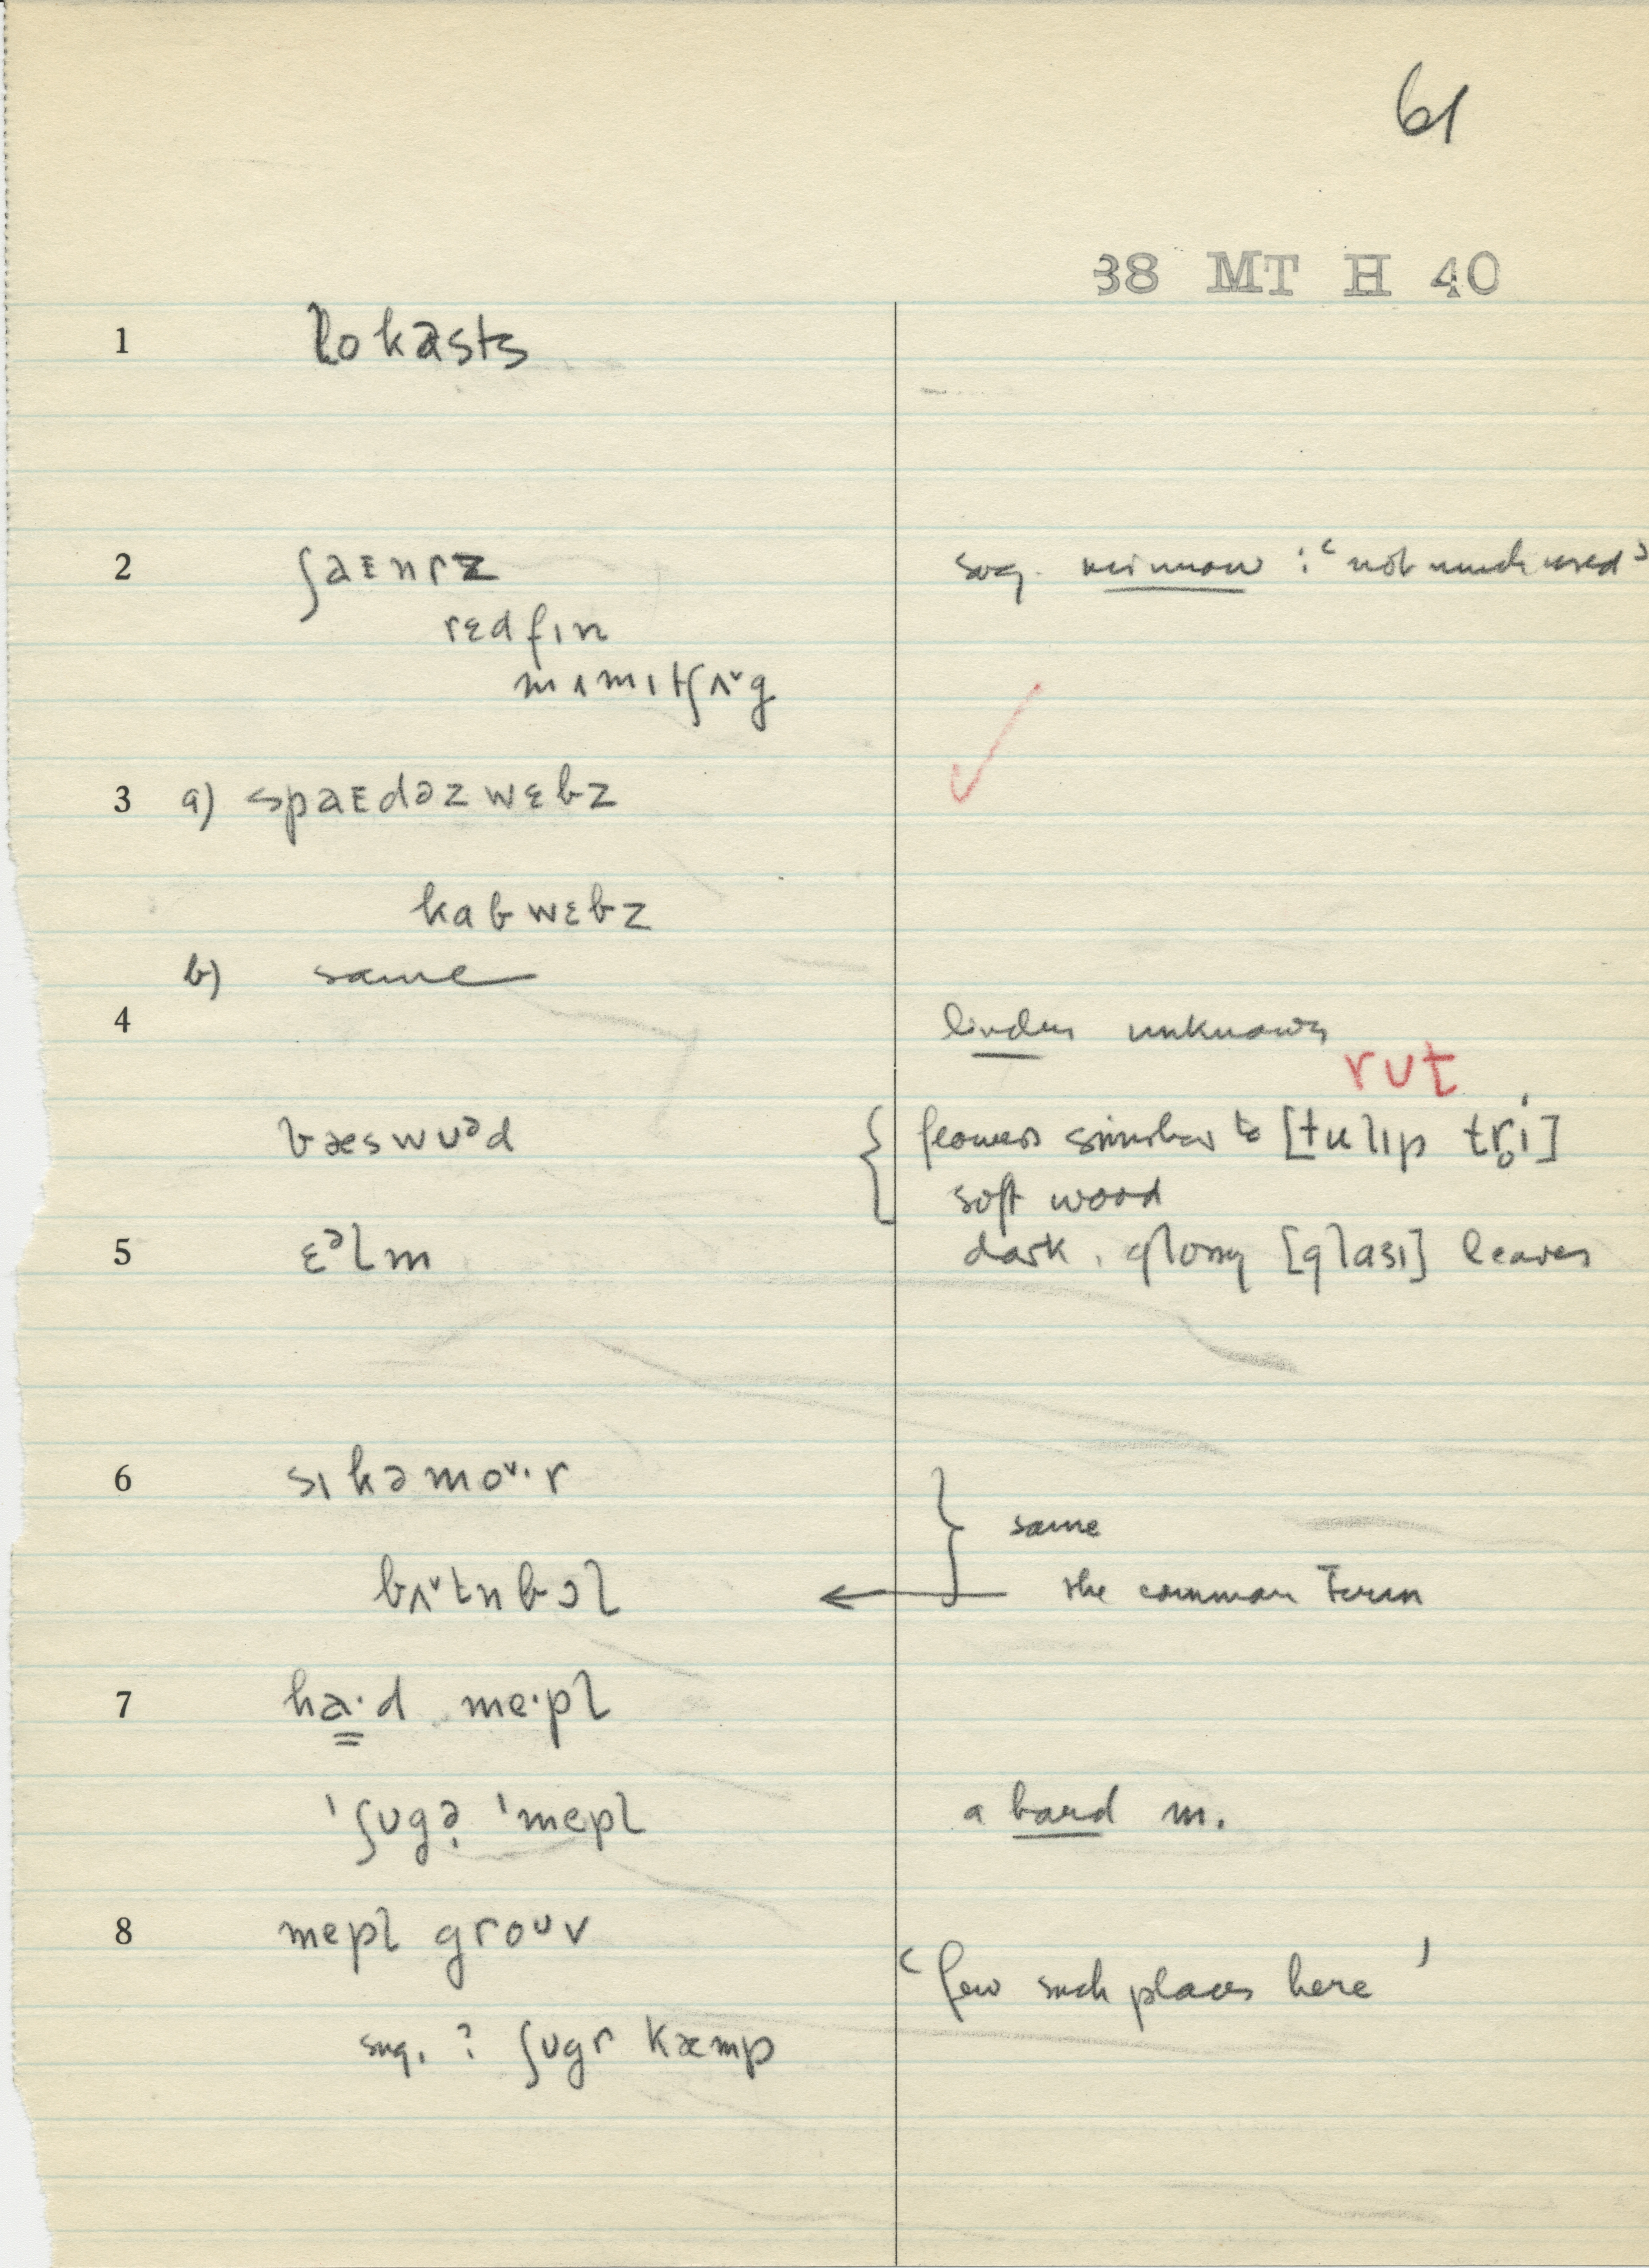 61
38 MT H 40
1 lokəsts
2 ʃaɛnɾz sug. minnow : ‘not much used’
rɛdfɪn
mʌmɪtʃʌˇg
✓
3 a) spaɛdəz wɛbz
kabwɛbz
b) same
4 linden unknown
rut
bæswʊᵊd { flowers similar to [tulɪp tr̥i]
soft wood
5 ɛᵊlm dark, glossy [glasɪ] leaves
6 sɪkəmoˇ·r
} same
bʌˇtnbɔl ← the common term
7 ha·d me·pl
ˈʃʊgə̣ ˈmepl a hard m.
8 mepl groᴜv
‘few such places here’
sug. ? ʃʊgɾ kæmp